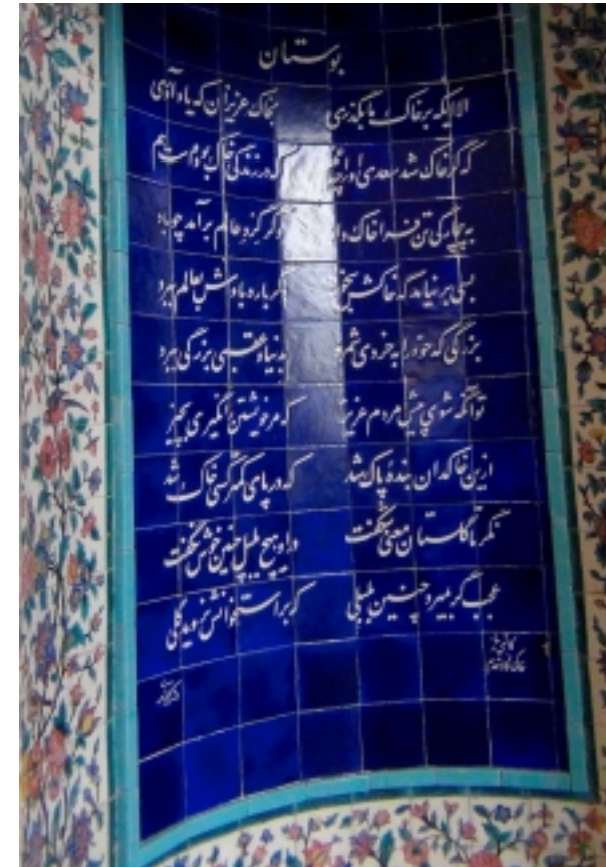 بوستان
الا ایکه بر خاک ما بگذری بخاک عزیزان که یاد آوری
که گر خاک شد سعدی او را چه غم که در زندگی خاک بودست هم
به بیچارگی تن فرا خاک داد وگر گرد عالم برآمد چو باد
بسی بر نیاید که خاکش خورد دگر باره بادش بعالم برد
بزرگی که خود را به خردی شمرد بدنیا و عقبی بزرگی ببرد
تو آنگه شوی پیش مردم عزیز که مر خویشتن را نگیری بچیز
ازین خاکدان بنده پاک شد که در پای کمتر کسی خاک شد
نگر تا گلستان معنی شکفت در او هیچ بلبل چنین خوش نگفت
عجب گر بمیرد چنین بلبلی که بر استخوانش نروید گلی